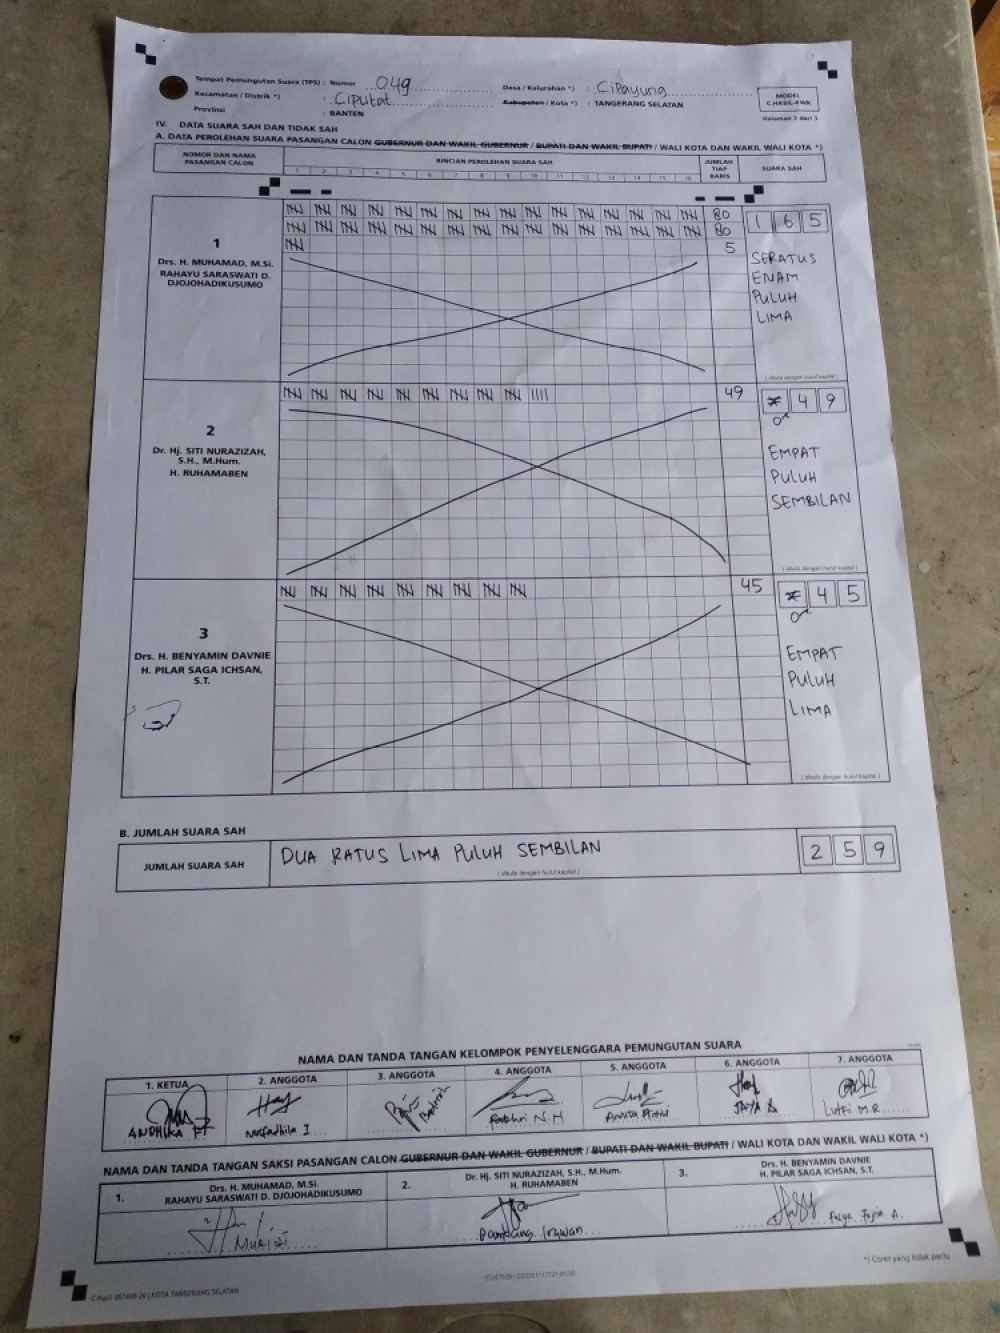 Tempat Pemungutan Suara (TPS) : Nomor 049 Desa / Kelurahan *) : Cipayung
Kecamatan / Distrik *) : Ciputat Kabupaten / Kota *) : TANGERANG SELATAN
Provinsi : BANTEN
MODEL
C.HASIL-KWK
Halaman 2 dari 3
IV. DATA SUARA SAH DAN TIDAK SAH
A. DATA PEROLEHAN SUARA PASANGAN CALON GUBERNUR DAN WAKIL GUBERNUR / BUPATI DAN WAKIL BUPATI / WALI KOTA DAN WAKIL WALI KOTA *)
NOMOR DAN NAMA
PASANGAN CALON
RINCIAN PEROLEHAN SUARA SAH
1 2 3 4 5 6 7 8 9 10 11 12 13 14 15 16
JUMLAH
TIAP
BARIS
SUARA SAH
1
Drs. H. MUHAMAD, M.Si.
RAHAYU SARASWATI D.
DJOJOHADIKUSUMO
80
80
5
1 6 5
SERATUS
ENAM
PULUH
LIMA
( ditulis dengan huruf kapital )
2
Dr. Hj. SITI NURAZIZAH,
S.H., M.Hum.
H. RUHAMABEN
49
* 4 9
EMPAT
PULUH
SEMBILAN
( ditulis dengan huruf kapital )
3
Drs. H. BENYAMIN DAVNIE
H. PILAR SAGA ICHSAN,
S.T.
45
* 4 5
EMPAT
PULUH
LIMA
( ditulis dengan huruf kapital )
B. JUMLAH SUARA SAH
JUMLAH SUARA SAH
DUA RATUS LIMA PULUH SEMBILAN
( ditulis dengan huruf kapital )
2 5 9
NAMA DAN TANDA TANGAN KELOMPOK PENYELENGGARA PEMUNGUTAN SUARA
1. KETUA 2. ANGGOTA 3. ANGGOTA 4. ANGGOTA 5. ANGGOTA 6. ANGGOTA 7. ANGGOTA
ANDHIKA Nurfadhila I Fakhri N.H Lutfi M.R
NAMA DAN TANDA TANGAN SAKSI PASANGAN CALON GUBERNUR DAN WAKIL GUBERNUR / BUPATI DAN WAKIL BUPATI / WALI KOTA DAN WAKIL WALI KOTA *)
1. Drs. H. MUHAMAD, M.Si.
RAHAYU SARASWATI D. DJOJOHADIKUSUMO
2. Dr. Hj. SITI NURAZIZAH, S.H., M.Hum.
H. RUHAMABEN
3. Drs. H. BENYAMIN DAVNIE
H. PILAR SAGA ICHSAN, S.T.
Bambang Irawan
*) Coret yang tidak perlu
KOTA TANGERANG SELATAN